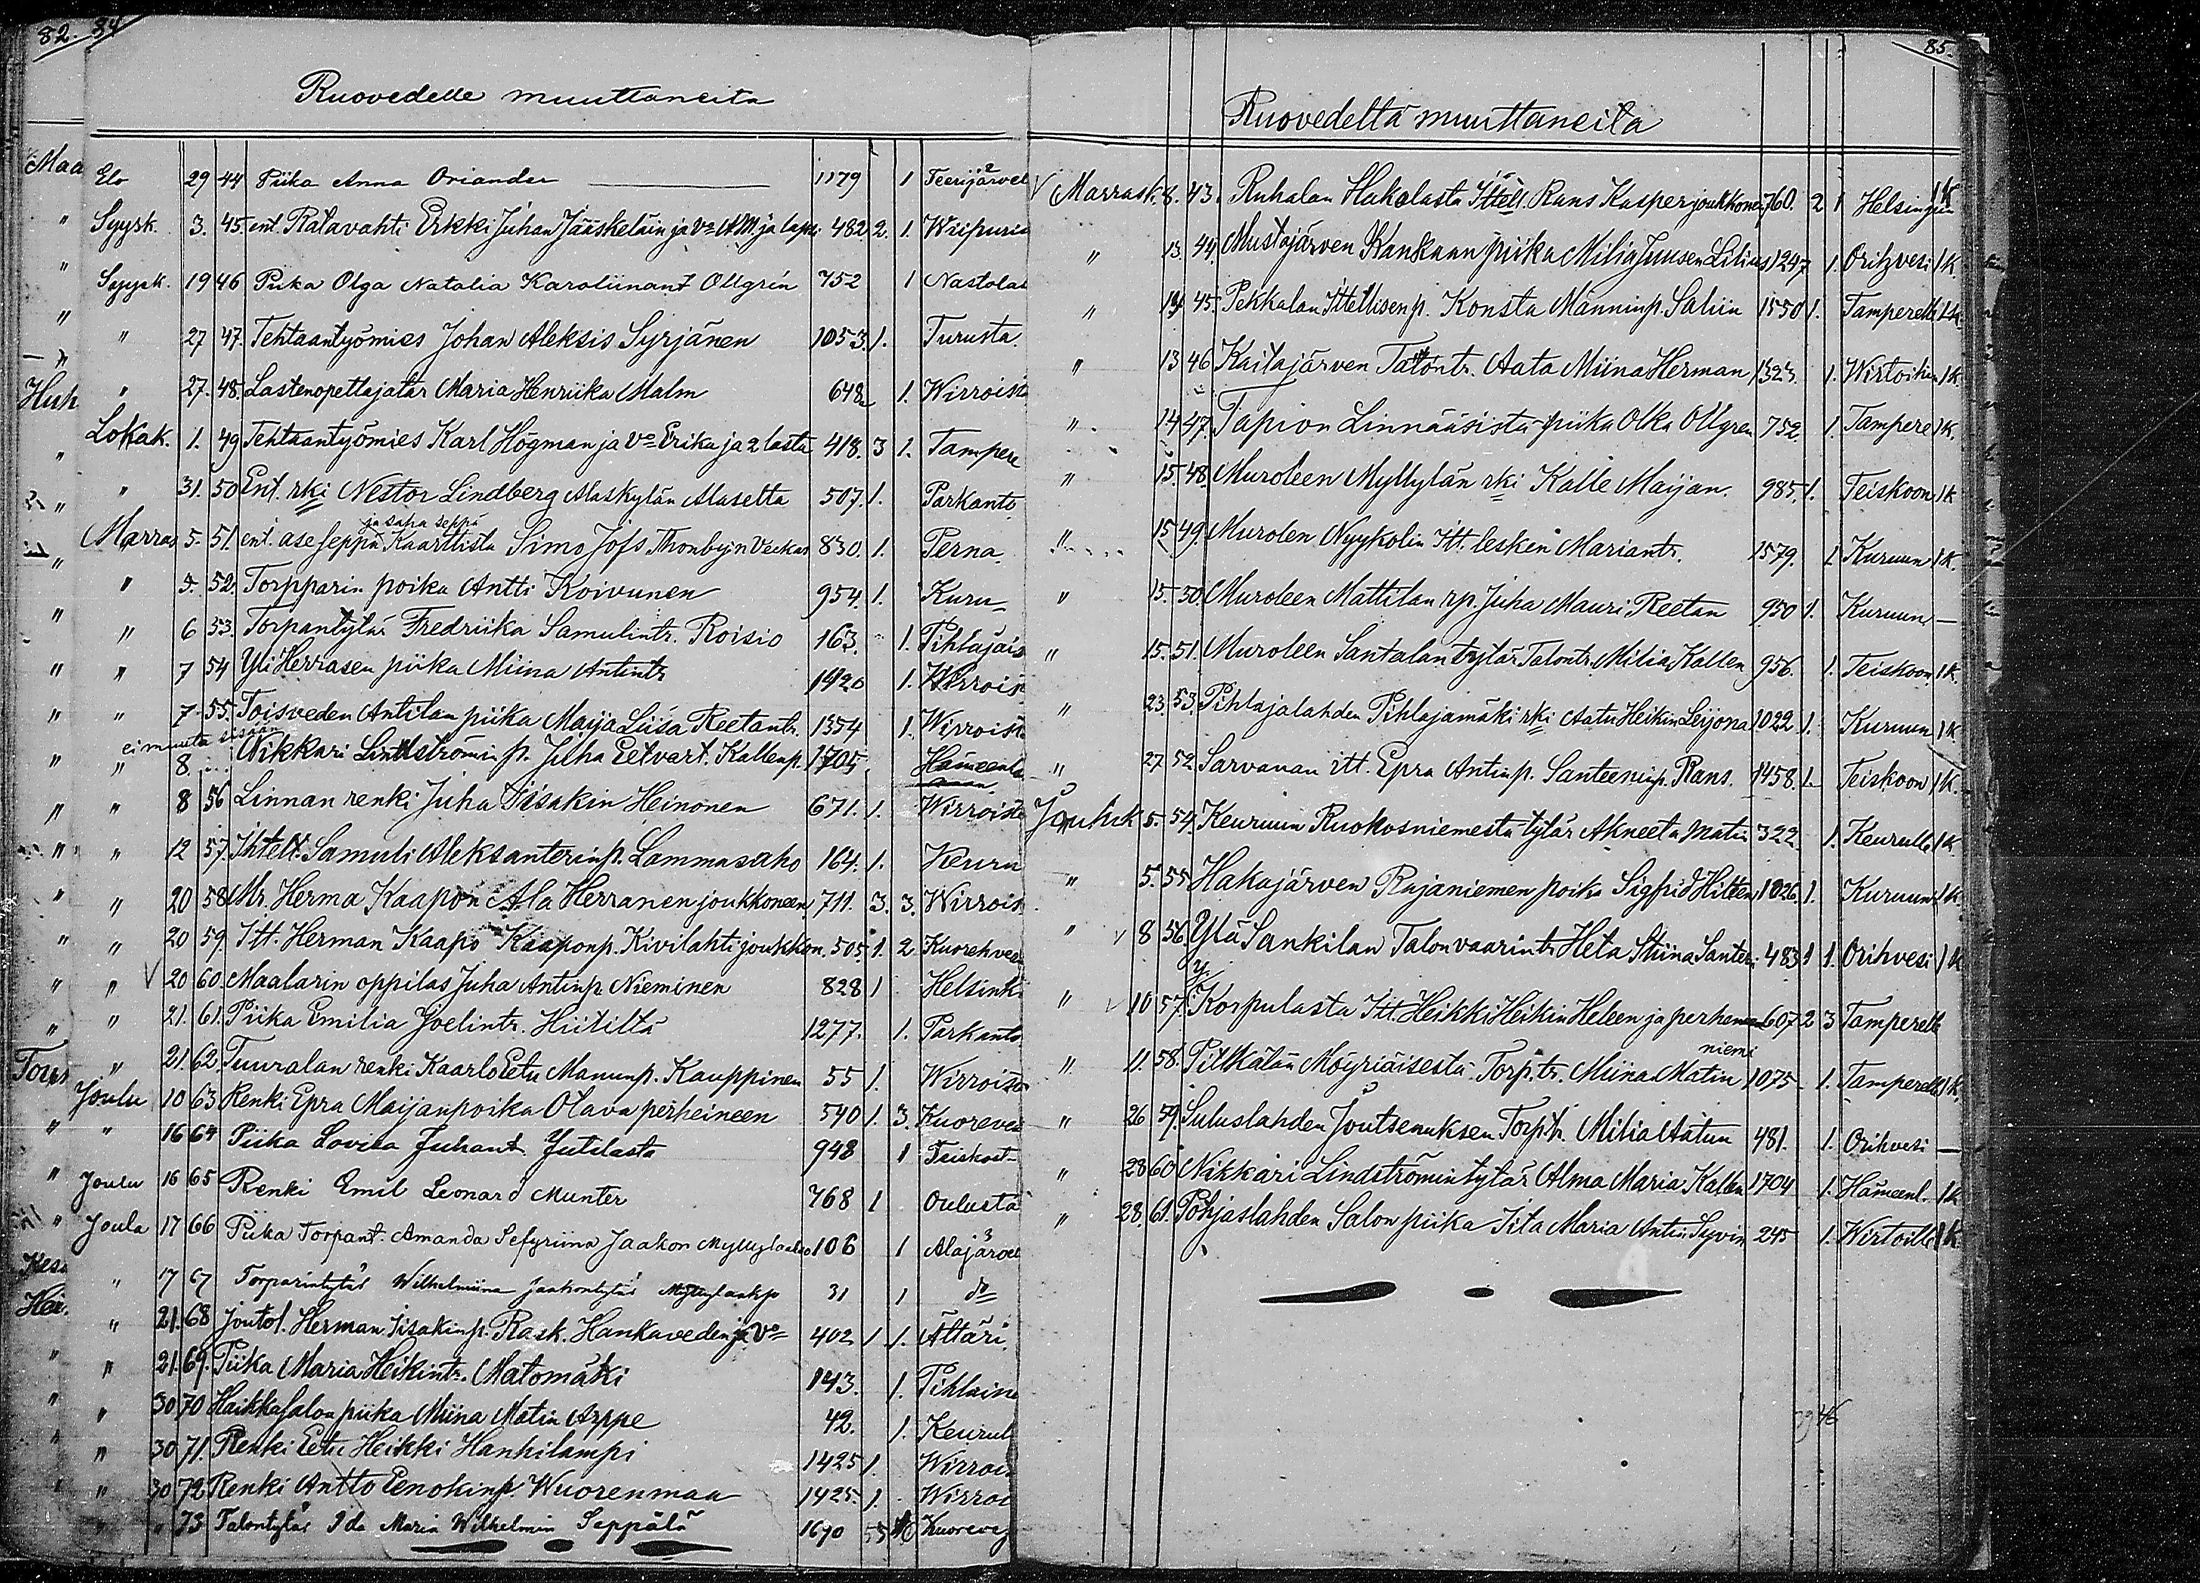 82. 84
Ruovedelle muuttaneita
Elo 29 44 Piika Anna Oriander 1179 1 Teerijärvel
Syysk. 3. 45. ent. Ratavahti Erkki Juhan Jääskeläin ja Vo A.M. ja lapsi 482 2. 1. Wiipuris
Syysk. 19 46 Piika Olga Natalia Karoliinant Ollgrén 752 1 Nastolas
" 27 47. Tehtaantyömies Johan Aleksis Syrjänen 1053. 1. Turusta.
" 27. 48. Lastenopettajatar Maria Henriika Malm 648 1. Wirroista
Lokak. 1. 49 Tehtaantyömies Karl Högman ja Vo Erika ja 2 lasta 418. 3 1. Tampere
" 31. 50 Ent. rki Nestor Lindberg Alaskylän Alaselta 507. 1. Parkanto
ja saha seppä
Marras 5. 51. ent. ase seppä Kaartista Simo Jofs Thonbyjn Veckas 830. 1. Perna
" 5. 52. Torpparin poika Antti Koivunen 954. 1. Kuru
" 6 53. Torpantytär Fredriika Samulintr. Roisio 163. 1. Pihlajais
" 7 54 Yli Herrasen piika Miina Antintr 1420 1. Wirrois
" 7. 55. Toisveden Antilan piika Maija Liisa Reetantr. 1354 1. Wirroist
ei muuta sisään
" 8 Nikkari Lindströmin p. Juha Eetvart. Kallenp. 1705 Hämeenli
" 8 56 Linnan renki Juha Iisakin Heinonen 671. 1. Wirroista
" 12 57. Ihtell. Samuli Aleksanterinp. Lammasaho 164. 1. Keuru
" 20 58 Mr. Herma Kaapon Ala Herranen joukkoneen 711. 3. 3. Wirrois
" 20 59. Itt. Herman Kaapo Kaaponp. Kivilahti joukkon. 505. 1. 2. Kuorehves
" V 20 60 Maalarin oppilas Juha Antinp. Nieminen 828 1 Helsinki
" 21. 61. Piika Emilia Joelintr. Hiitiltä 1277. 1. Parkanto
" 21. 62. Tuuralan renki Kaarlo Eetu Manunp. Kauppinen 55 1. Wirroista
Joulu 10 63 Renki Epra Maijanpoika Olava perheineen 540 1. 3. Kuoreves
" 16 64 Piika Lovisa Juhant. Jutilasta 948 1 Teiskost
Joulu 16 65 Renki Emil Leonard Munter 768 1 Oulusta
Joulu 17 66 Piika Torpant. Amanda Sefyriina Jaakon Myllylaakso 106 1 Alajärvel
" 17 67 Torparintytär Wilhelmiina Jaakontytär 31 1 do
" 21. 68 Joutol. Herman Iisakinp. Rask. Hankaveden ja Vo 402 1 1. Ättäri
" 21. 69. Piika Maria Heikintr. Matomäki 143. 1. Pihlaine
" 30 70 Haikkasalon piika Miina Matin Arppe 42. 1. Keurul
" 30 71. Renki Eetu Heikki Hankilampi 1425 1. Wirrois
" 30 72 Renki Antto Eenokinp. Wuorenmaa 1425. 1. Wirroi
" " 73 Talontytär Ida Maria Wilhelmin Seppälä 1670 Kuorevej
85.
Ruovedeltä muuttaneita
V Marrask. 8. 43. Ruhalan Hakalasta Ittell. Rans Kasper joukkonen 760. 2 1 Helsingiin 1K
" 13. 44. Mustajärven Kankaan piika Milia Juusen Lilius 1247 1. Orihvesi 1K.
" 13 45. Pekkalan Ittellisen p. Konsta Manninp. Saliin 1550 1. Tamperelle 1K.
" 13 46 Kaitajärven Talontr. Aata Miina Herman 1323. 1. Wirtoihin 1K.
" 14 47. Tapion Linnääsistä piika Olka Ollgren 752 1. Tampere 1K.
" 15. 48. Muroleen Myllylän rki Kalle Maijan. 985. 1. Teiskoon 1K
" 15 49. Murolen Nyykolin Itt. lesken Mariantr. 1579. 1 Kuruun 1K.
" 15. 50. Muroleen Mattilan rp. Juha Mauri Reetan 950 1. Kuruun —
" 15. 51. Muroleen Santalan tytär Talontr. Milia Kallen 956. 1. Teiskoon 1K.
" 23. 53. Pihlajalahden Pihlajamäki rki Aatu Heikin Leijona 1022 1. Kuruun 1K.
" 27 52 Sarvanan itt. Epra Antinp. Santeeninp. Rans. 1458. 1. Teiskoon 1K.
Jouluk 5. 54. Keuruun Ruokosniemestä tytär Akneeta Matin 322 1. Keurulle 1K.
" 5. 55 Hakajärven Rajaniemen poika Sigfrid Hilten 1026. 1. Kuruun 1K
" V 8 56. Ylä Sankilan Talonvaarintr Heta Stiina Santeri 483 1 1. Orihvesi 1K
" V 10 57. Y. Korpulasta Itt. Heikki Heikin Heleen ja perheneen 607 2 3 Tamperelle
niemi
" 11. 58. Pitkälän Möyriäisestä Torp. tr. Miina Matin 1075 1. Tamperelle 1K.
" 26 59. Suluslahden Joutsenuksen Torp. tr. Milia Aatun 481. 1. Orihvesi —
" 28 60 Nikkari Lindströmin tytär Alma Maria Kallen 1704 1. Hämeenl. 1K
" 28 61. Pohjaslahden Salon piika Iita Maria Antin Syvin 245 1. Wirtoille 1K
46